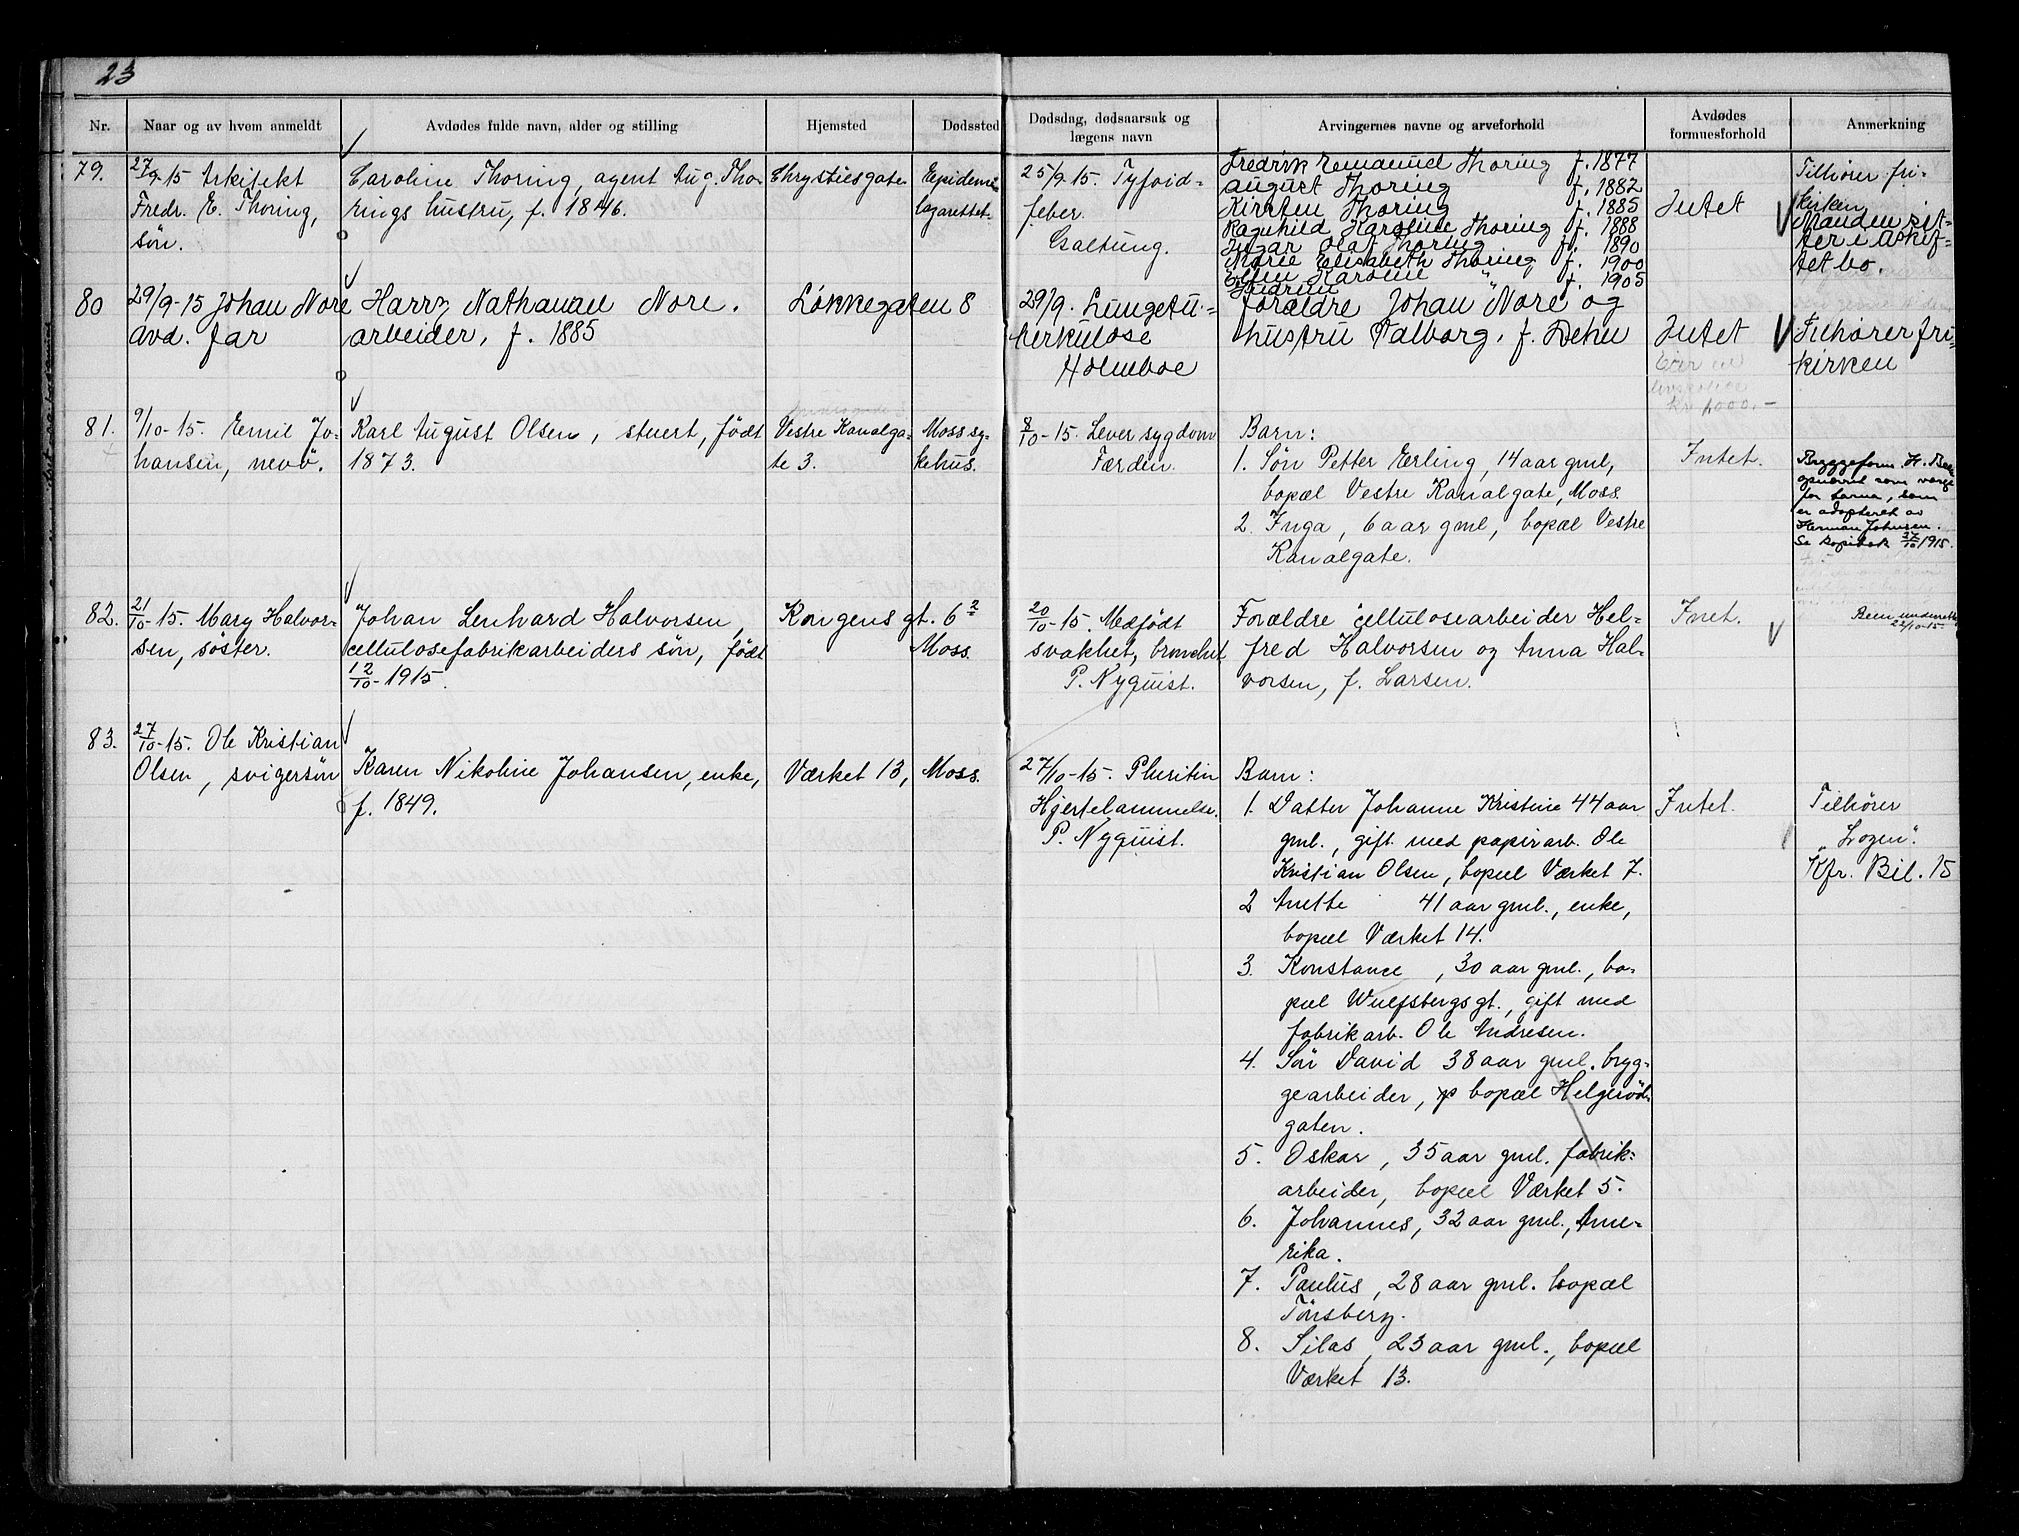 23
Nr.
Naar og av hvem anmeldt
Avdødes fulde navn, alder og stilling
Hjemsted
Dødssted
Dødsdag, dødsaarsak og
lægens navn
Arvingernes navne og arveforhold
Avdødes
formuesforhold
Anmerkning
79.
27/9-15 Arkitekt
Fredr. E. Thoring,
søn.
Caroline Thoring, agent Aug. Tho-
rings hustru, f. 1846.
Chrystiesgate
Epidemi
lazarettet.
25/9-15. Tyfoid-
feber.
Galtung.
Fredrik Emanuel Thoring f. 1877
August Thoring f. 1882
Kirsten Thoring f. 1885
Ragnhild Karoline Thoring f. 1888
Ingar Olaf Thoring f. 1890
Marie Elisabeth Thoring f. 1900
Ellen Karoline " f. 1905
Intet
Tilhører fri-
kirken
Manden sit-
ter i uskif-
tet bo.
80
29/9-15 Johan Nore
avd. far
Harry Nathanael Nore.
arbeider, f. 1885
Løkkegaten 8
29/9. Lungetu-
berkulose
Holmboe
Forældre Johan Nore og
hustru Valborg, f. Dehn
Intet
livspolice
kr. 1000.-
Tilhører fri-
kirken
81.
9/10-15. Emil Jo-
hansen, nevø.
Karl August Olsen, stuert, født
1873.
Vestre Kanalga-
te 3.
Moss sy-
kehus.
8/10-15. Leversygdom
Færden.
Barn:
1. Søn Petter Erling, 14 aar gml,
bopæl Vestre Kanalgate, Moss.
2. Inga, 6 aar gml, bopæl Vestre
Kanalgate.
Intet.
Byggeform. H. Be
opnævnt som verge
for barna, som
er adopteret av
Herman Johnsen.
Se kopibok 27/10 1915.
82.
21/10-15. Mary Halvor-
sen, søster.
Johan Lenhard Halvorsen,
cellulosefabrikarbeiders søn, født
12/10-1915.
Kongens gt. 6²
Moss.
20/10-15. Medfødt
svakhet, bronchit
P. Nyquist.
Forældre cellulosearbeider Hel-
fred Halvorsen og Anna Hal-
vorsen, f. Larsen.
Intet.
Been underrettet
22/10-15.
83.
27/10-15. Ole Kristian
Olsen, svigersøn
Karen Nikoline Johansen, enke,
f. 1849.
Værket 13,
Moss.
27/10-15. Pluritin
Hjertelammelse.
P. Nyquist.
Barn:
1. Datter Johanne Kristine 44 aar
gml., gift med papirarb. Ole
Kristian Olsen, bopæl Værket 7.
2 Anette 41 aar gml., enke,
bopæl Værket 14.
3. Konstance, 30 aar gml., bo-
pæl Wulfsbergsgt., gift med
fabrikarb. Ole Andresen.
4. Søn David 38 aar gml. bryg-
gearbeider, bopæl Helgerød-
gaten.
5. Oskar, 35 aar gml. fabrik-
arbeider, bopæl Værket 5.
6. Johannes, 32 aar gml., Ame-
rika.
7. Paulus, 28 aar gml. bopæl
Tönsberg.
8. Silas, 23 aar gml., bopæl
Værket 13.
Intet.
Tilhører
"Logen".
Kfr. Bil. 15